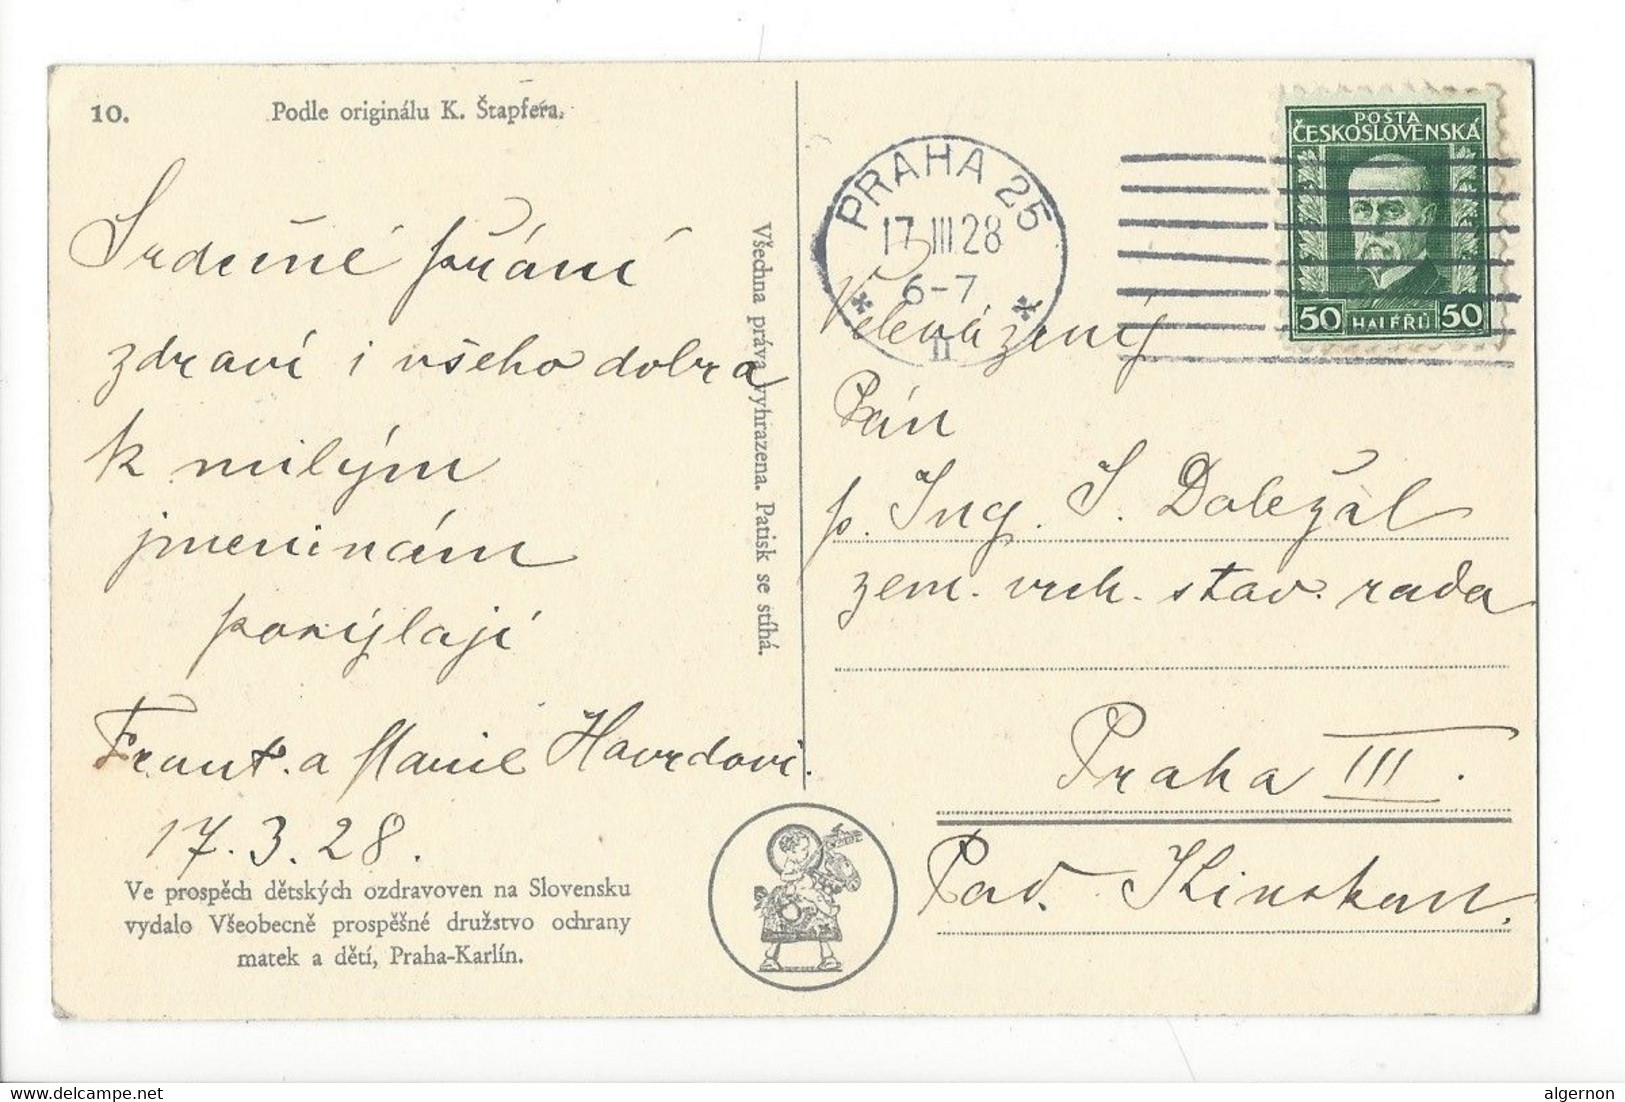 10.
Podle originálu K. Štapfera.
Srdečné přání
zdraví i všeho dobra
k milým
jmeninám
posýlají
Frant. a Marie Havrdovi.
17.3.28.
Ve prospěch dětských ozdravoven na Slovensku
vydalo Všeobecně prospěšné družstvo ochrany
matek a dětí, Praha-Karlín.
Všechna práva vyhrazena. Patisk se stíhá.
PRAHA 25
17 III 28
6-7
II
POSTA
ČESKOSLOVENSKÁ
50 HALÉŘŮ 50
Velevážený
Pán
p. Ing. J. Doležal
zem. vrch. stav. rada
Praha III.
Pod. Kinskou.
delcampe.net
algernon